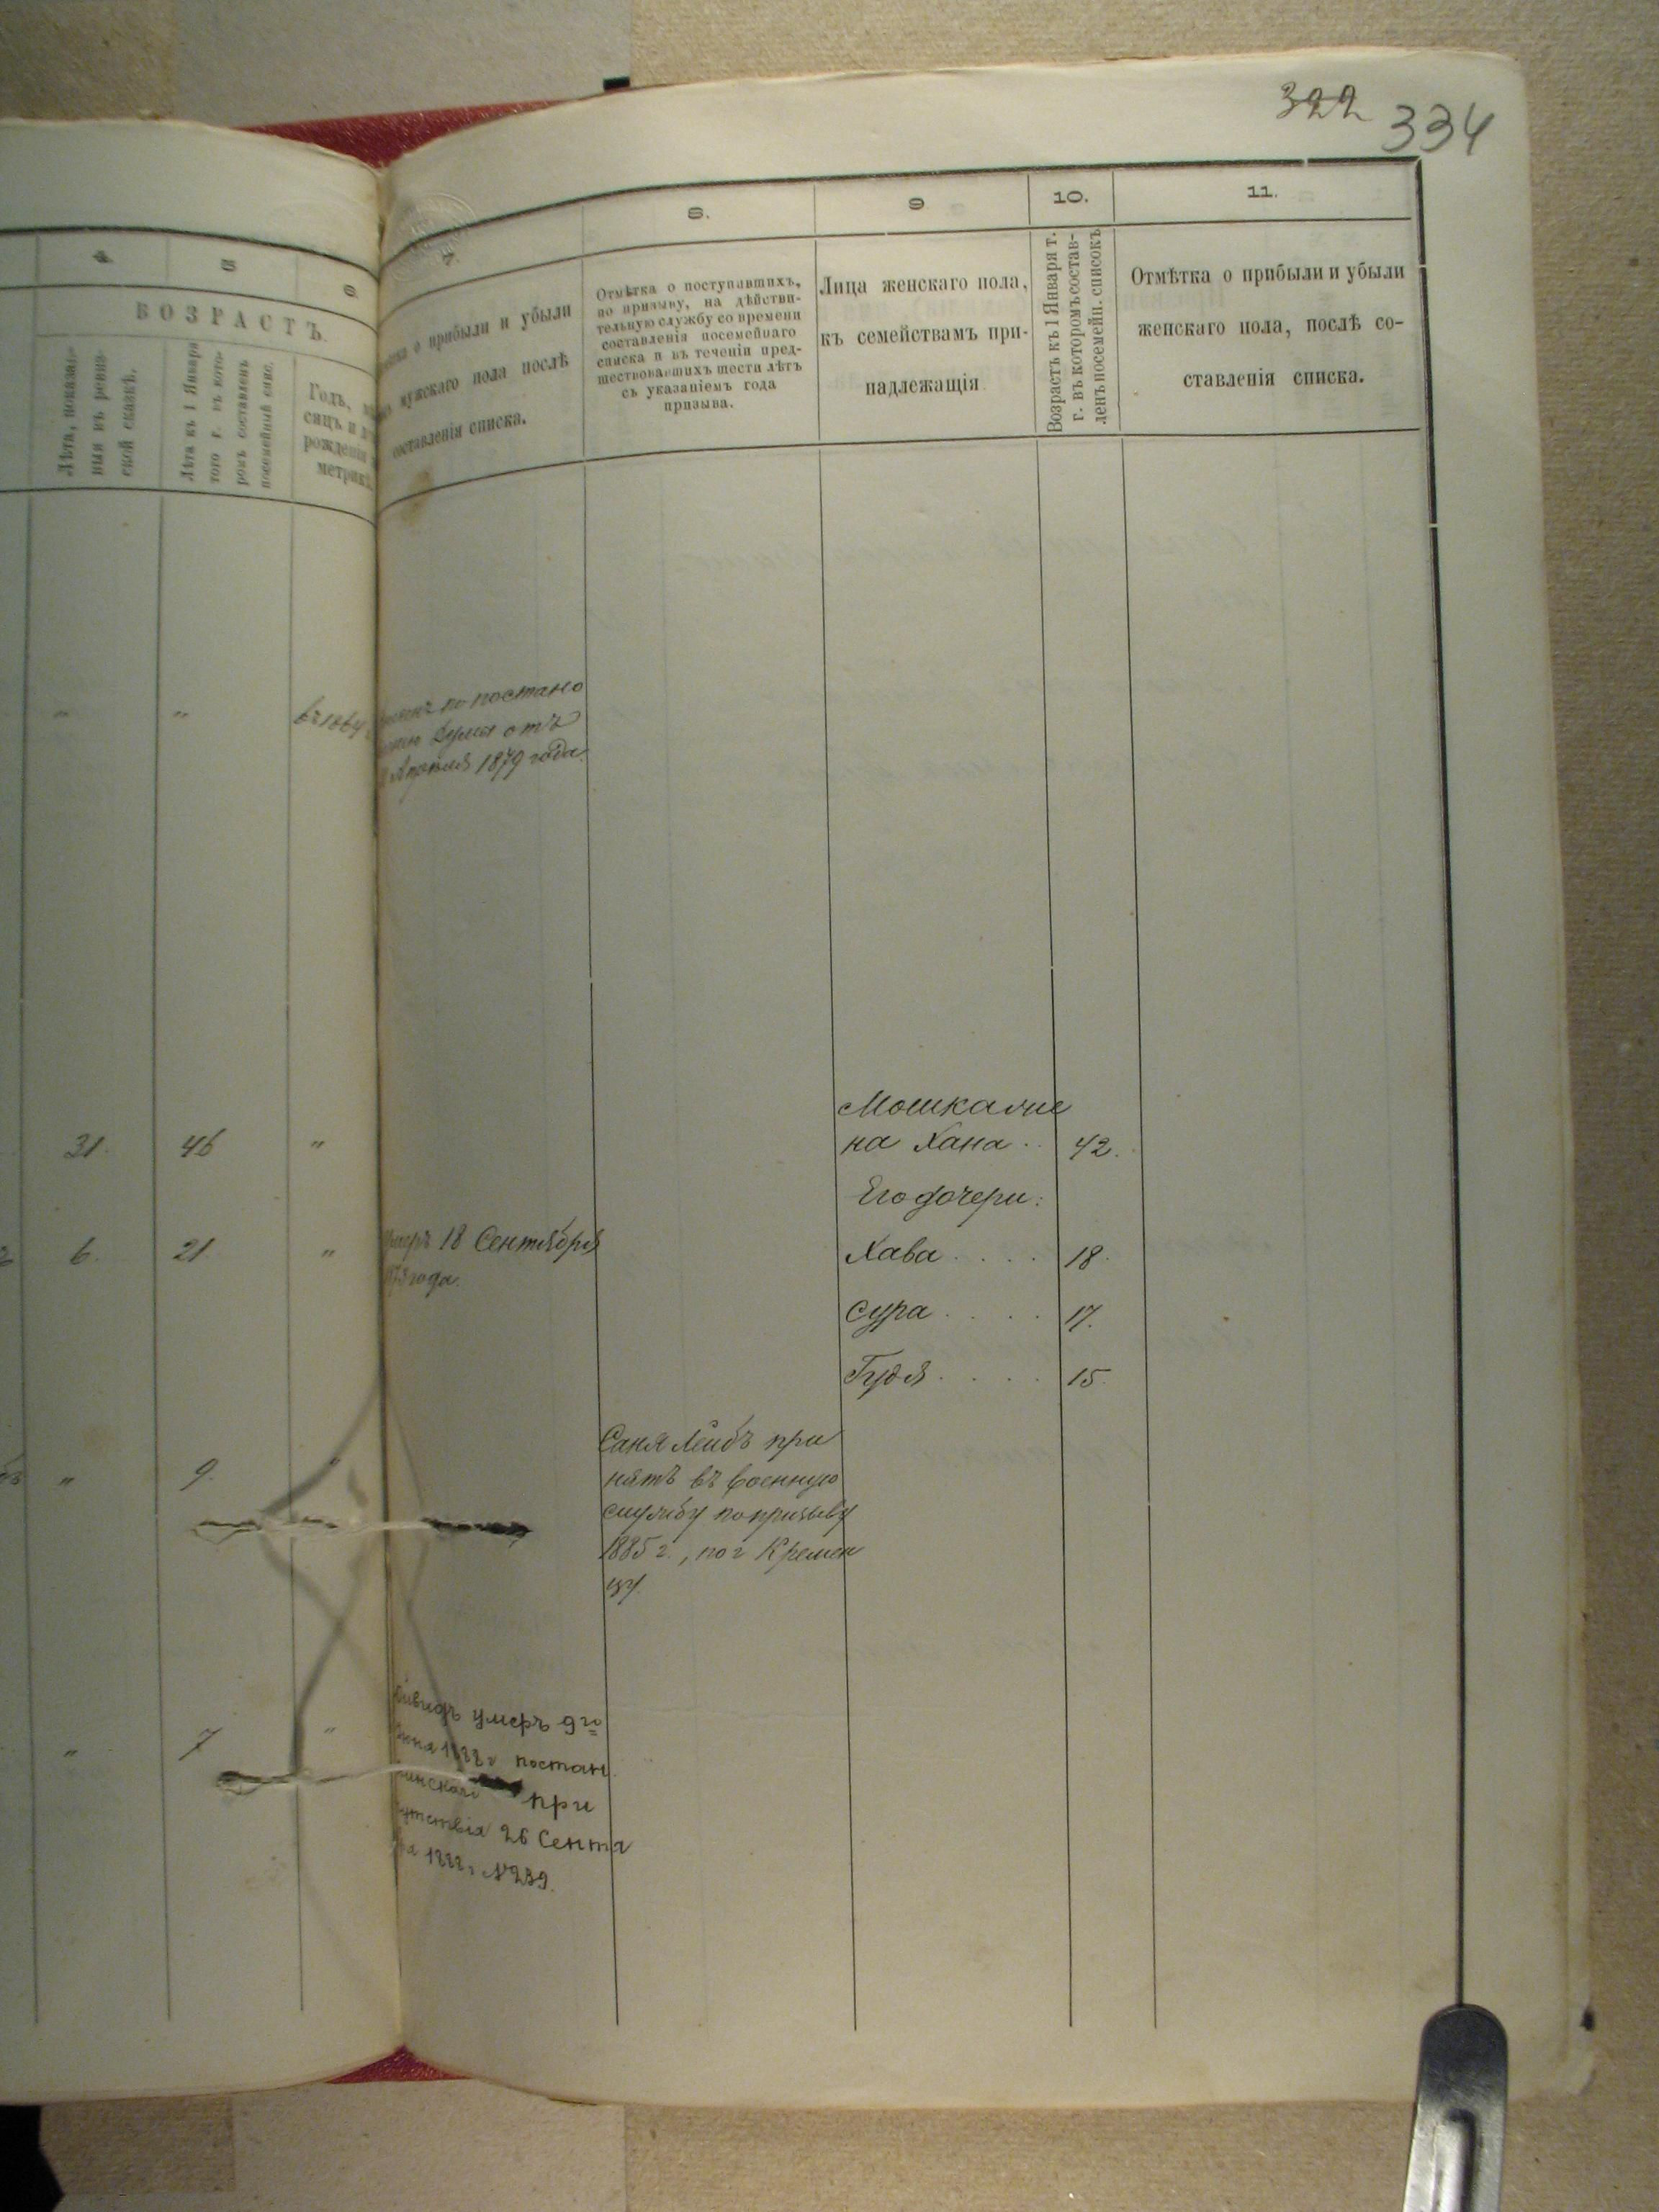 322 334
4. 5 6.
ВОЗРАСТЪ.
Лѣта, показан-
ныя въ ревиз-
ской сказкѣ.
Лѣта къ 1 Января
того г. въ кото-
ромъ составленъ
посемейный спис.
Годъ,
сяцъ и
рожденія
метрик
7. 8. 9 10. 11.
о прибыли и убыли
мужскаго пола послѣ
составленія списка.
Отмѣтка о поступившихъ,
по призыву, на дѣйстви-
тельную службу со времени
составленія посемейнаго
списка и въ теченіи пред-
шествовавшихъ шести лѣтъ
съ указаніемъ года
призыва.
Лица женскаго пола,
къ семействамъ при-
надлежащія
Возрастъ къ 1 Января т.
г. въ которомъ состав-
ленъ посемейн. списокъ
Отмѣтка о прибыли и убыли
женскаго пола, послѣ со-
ставленія списка.
" " въ 1864
по постано
Думы отъ
Апрѣля 1879 года.
Мошка же
31. 46 " на Хана . . 42.
Его дочери:
6. 21. " умеръ 18 Сентября Хава . . . . 18.
года.
Сура . . . . 17.
Гудя . . . . 15.
" 9. " Саня Лейбъ при
нятъ въ военную
службу по призыву
1885 г., по г Кремен
цу.
" 7 " умеръ 9го
1888 г постан.
при
сутствія 26 Сентя
1888 г №239.